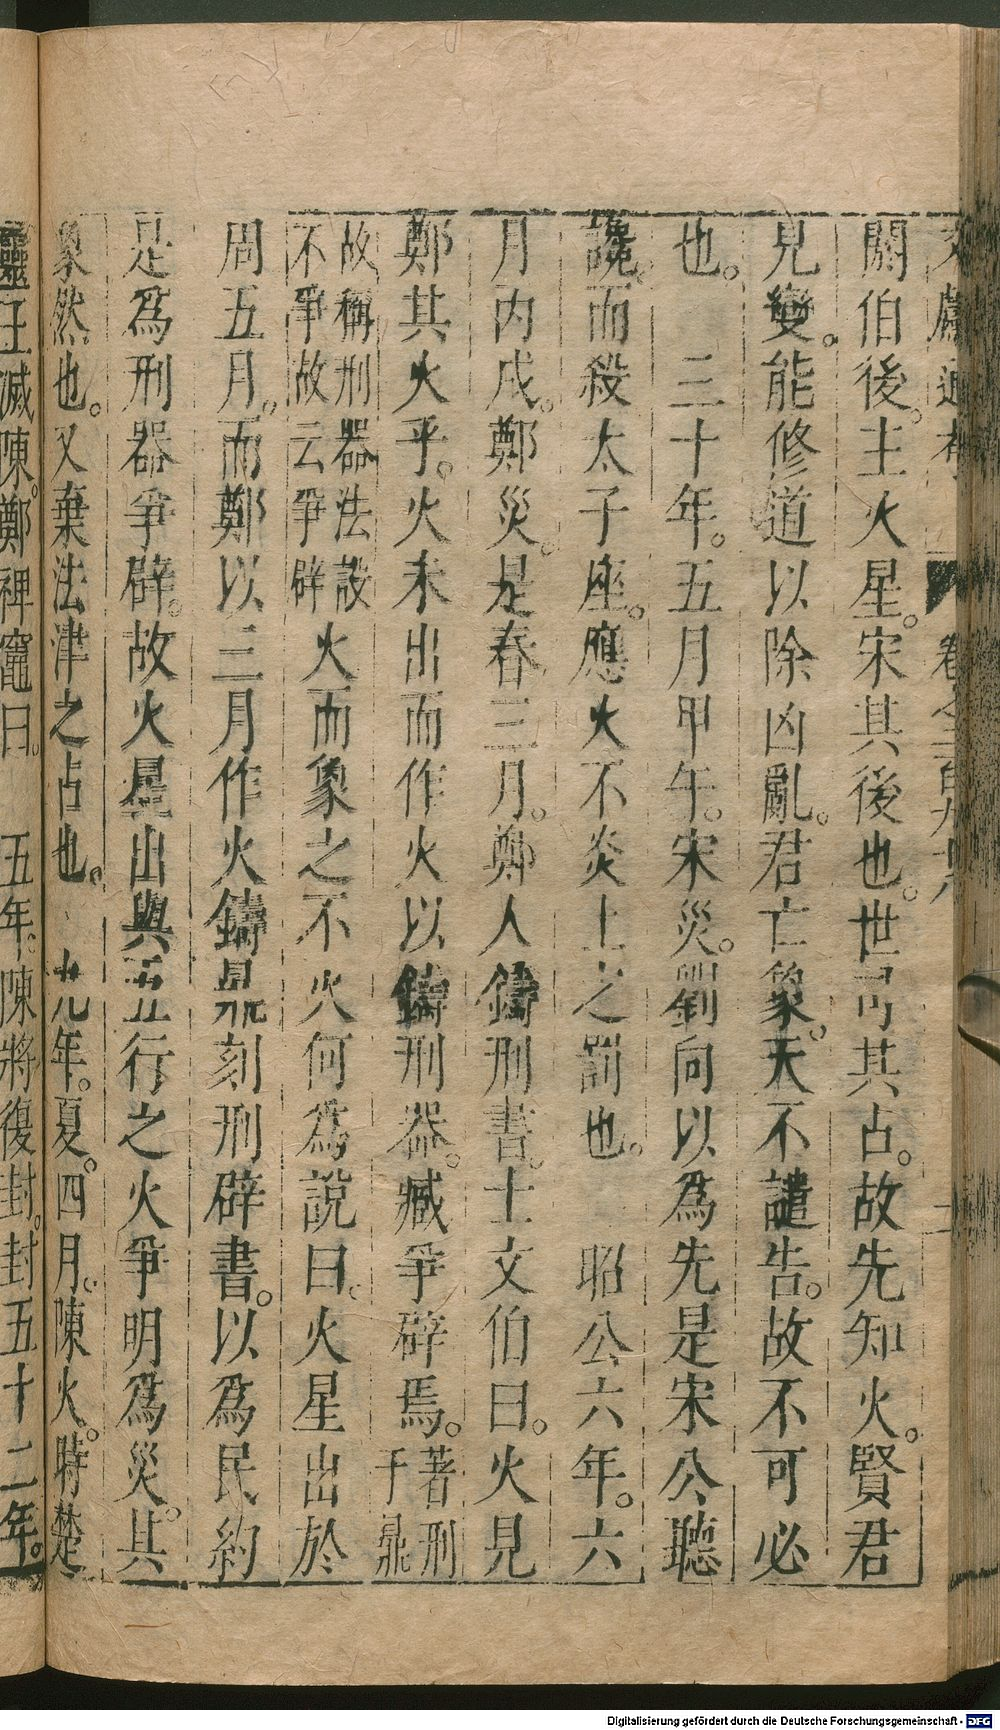 閼伯後。主火星。宋其後也。世司其占。故先知火。賢君
見變。能修道以除凶亂。君亡象。天不譴告。故不可必
也。 三十年。五月甲午。宋災。劉向以為先是宋公聽
讒。而殺太子座。應火不炎上之罰也。 昭公六年。六
月丙戌。鄭災。是春三月。鄭人鑄刑書。士文伯曰。火見
鄭其火乎。火未出而作火以鑄刑器。臧爭辟焉。著刑
于鼎
故稱刑器法設
不爭故云爭辟火而象之不火何為說曰。火星出於
周五月。而鄭以三月作火鑄鼎刻刑辟書。以為民約
是為刑器爭辟。故火星出與五行之火爭明為災。其
象然也。又棄法津之占也。 九年。夏。四月。陳火。時楚
靈王滅陳。鄭裨竈曰。 五年。陳將復封。封五十二年。
Digitalisierung gefördert durch die Deutsche Forschungsgemeinschaft - DFG